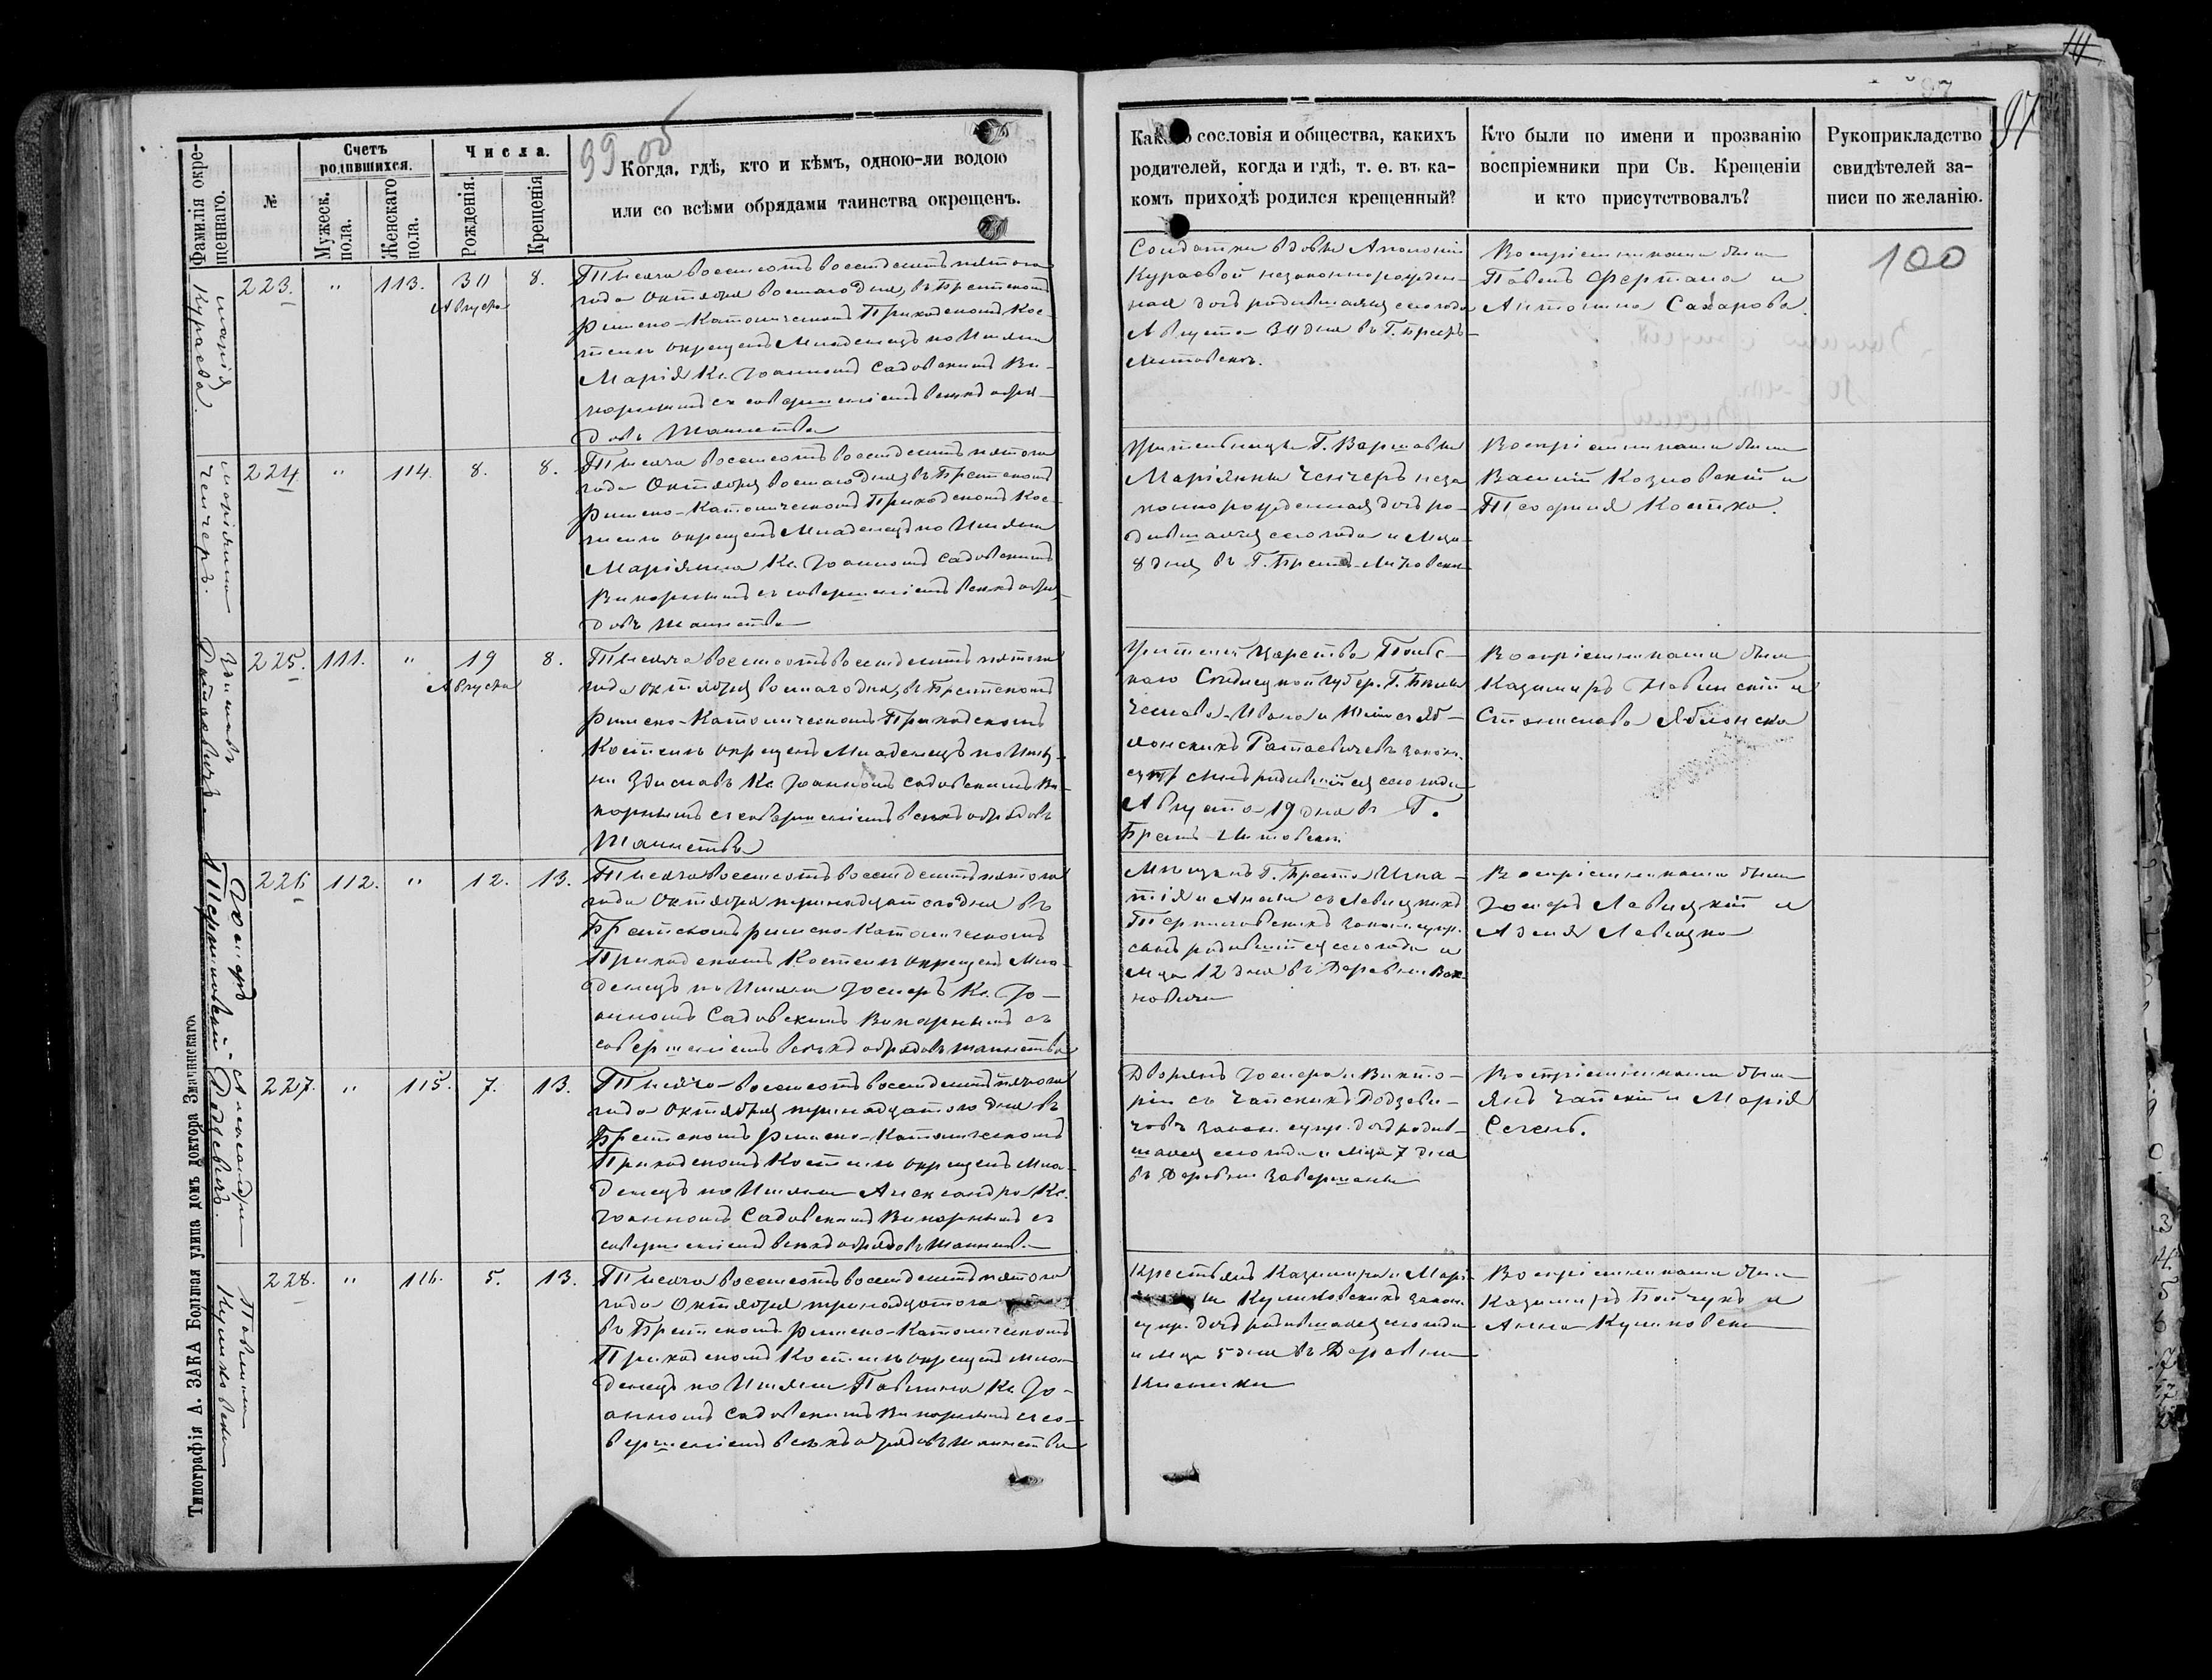 99 об
Фамилія окре-
щеннаго.
№
Счетъ
родившихся.
Мужеск.
пола.
Женскаго
пола.
Числа.
Рожденія.
Крещенія
Когда, гдѣ, кто и кѣмъ, одною-ли водою
или со всѣми обрядами таинства окрещенъ.
Марія
Кураева.
223. " 113. 30 8.
Августа
Тысяча восемсотъ восемдесятъ пятого
года Октября восмаго дня, въ Брестскомъ
Римско-Католическомъ Приходскомъ Кос-
телѣ окрещенъ Младенецъ по Имени
Марія Кс. Іоанномъ Садовскимъ Ви-
карнымъ съ совершеніемъ всѣхъ обря-
довъ Таинства
Маріянна
Ченчеръ.
224. " 114. 8. 8.
Тысяча восемсотъ восемдесятъ пятого
года Октября восмаго дня, въ Брестскомъ
Римско-Католическомъ Приходскомъ Кос-
телѣ окрещенъ Младенецъ по Имени
Маріянна Кс. Іоанномъ Садовскимъ
Викарнымъ съ совершеніемъ всѣхъ обря-
довъ Таинства
Здиславъ
Ратаевичъ
225. 111. " 19 8.
Августа
Тысяча восемсотъ восемдесятъ пятого
года Октября восмаго дня, въ Брестскомъ
Римско-Католическомъ Приходскомъ
Костелѣ окрещенъ Младенецъ по Име-
ни Здиславъ Кс Іоанномъ Садовскимъ Ви-
карнымъ съ совершеніемъ всѣхъ обрядовъ
Таинства
Іосифъ
Терпиловскій
226 112. " 12. 13.
Тысяча восемсотъ восемдесятъ пятого
года Октября тринадцатого дня въ
Брестскомъ Римско-Католическомъ
Приходскомъ Костелѣ окрещенъ Мла-
денецъ по Имени Іосифъ Кс. Іо-
анномъ Садовскимъ Викарнымъ съ
совершеніемъ всѣхъ обрядовъ таинства
Александра
Додзевичъ.
227. " 115. 7. 13.
Тысяча восемсотъ восемдесятъ пятого
года Октября тринадцатого дня въ
Брестскомъ Римско-Католическомъ
Приходскомъ Костелѣ окрещенъ Мла-
денецъ по Имени Александра Кс.
Іоанномъ Садовскимъ Викарнымъ съ
совершеніемъ всѣхъ обрядовъ Таинства
Павлина
Куликовска
228. " 116. 5. 13.
Тысяча восемсотъ восемдесятъ пятого
года Октября тринадцатого
въ Брестскомъ Римско-Католическомъ
Приходскомъ Костелѣ окрещенъ Мла-
денецъ по Имени Павлина Кс. Іо-
анномъ Садовскимъ Викарнымъ съ со-
вершеніемъ всѣхъ обрядовъ таинства
Типографія А. ЗАКА Большая улица домъ доктора Змачинскаго.
97
Какого сословія и общества, какихъ
родителей, когда и гдѣ, т. е. въ ка-
комъ приходѣ родился крещенный?
Кто были по имени и прозванію
воспріемники при Св. Крещеніи
и кто присутствовалъ?
Рукоприкладство
свидѣтелей за-
писи по желанію.
100
Солдатки вдовы Аполоніи
Кураевой незаконнорожден-
ная дочь родившаяся сего года
Августа 30 дня въ Г. Брестъ-
Литовскъ.
Воспріемниками были
Павелъ Фертала и
Антонина Сахарова.
Жительницы Г. Варшавы
Маріянны Ченчеръ неза
коннорожденная дочь ро-
дившаяся сего года и М-ца
8 дня въ Г. Брестъ-Литовскъ
Воспріемниками были
Василій Козловскій и
Теофиля Костка.
Жителей Царства Польс-
каго Сѣдлецкой Губер. Г. Бялы
Ивана и съ Яб-
лонскихъ Ратаевичевъ закон.
супр сынъ родившійся сего года
Августа 19 дня въ Г.
Брестъ-Литовскъ.
Воспріемниками были
Казимиръ и
Станислава Яблонска
Мѣщанъ Г. Бреста Игна-
тія и Анны съ Левицкихъ
Терпиловскихъ закон. супр.
сынъ родившійся сего года и
М-ца 12 дня въ Деревни
Воспріемниками были
Іосифъ Левицкій и
Левицка
Дворянъ Іосифа и Викто-
ріи съ Чапскихъ Додзеви-
човъ закон. супр. дочь родив-
шаяся сего года и М-ца 7 дня
въ Деревни Завершаны
Воспріемниками были
Янъ Чапскій и Марія
Сегень.
Крестьянъ Казимира и Марі
Куликовскихъ закон.
супр. дочь родившаяся сего года
и М-ца 5 дня въ Деревни
Воспріемниками были
Казимиръ Бойчукъ и
Анна Куликовска